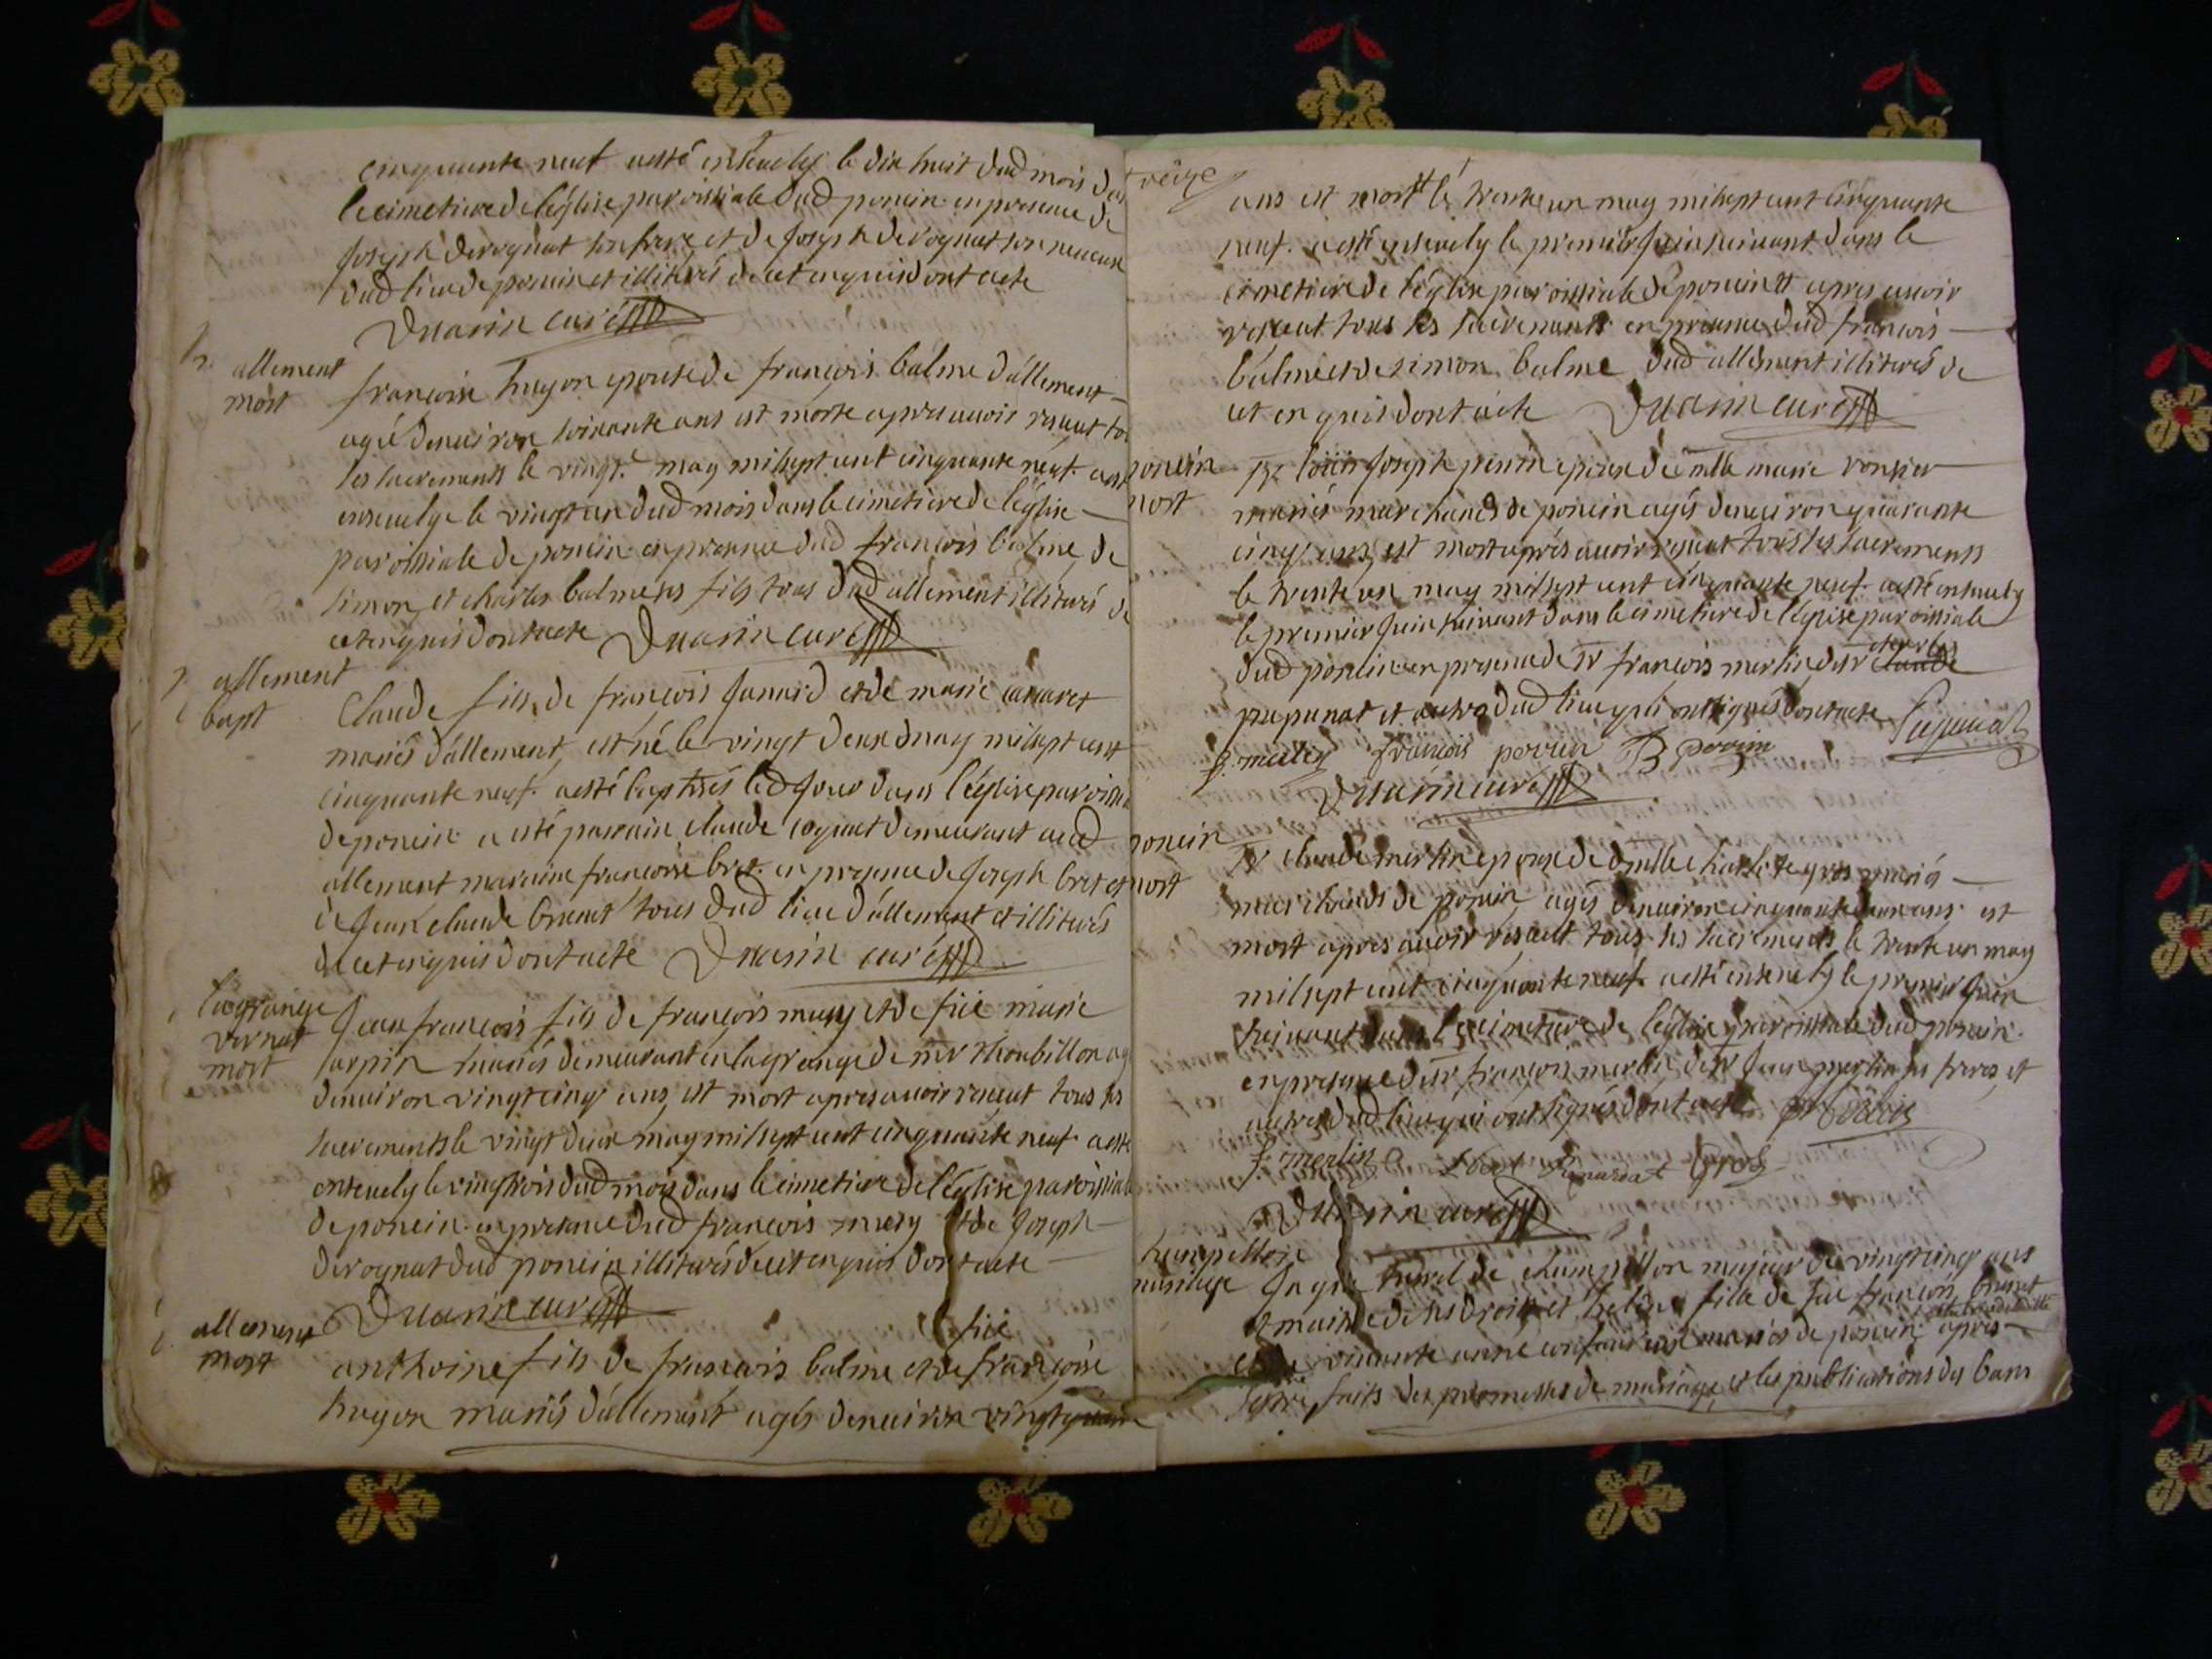 cinquante neuf aesté ensevely le dix huit dud mois dans
le cimetiere de l'église paroissiale dud poncin en presence de
Joseph derognat son frere et de Joseph derognat son neveux
dud lieu de poncin et illiterés de cet enquis dont acte
Duarin curé
allement
mort
francoise hugon epouse de francois balme d'allement
agée denviron soixante ans est morte apres avoir reseut to
les sacrements le vingt may mil sept cent cinquante neuf aest
ensevelye le vingt un dud mois dans le cimetiere de l'église
paroissiale de poncin en presence dud francois balme, de
simon et charles balme ses fils tous dud allement illiterés de
cet enquis dont acte Duarin curé
allement
bapt
Claude fils de francois Junard et de marie
mariés d'allement, est né le vingt deux may mil sept cent
cinquante neuf aesté baptisés led jour dans l'église paroissia
de poncin a esté parrain claude cognat demeurant aud
allement maraine francoise bret en presence de Joseph bret et
de Jean claude brunet tous dud lieu d'allement et illiterés
de cet enquis dont acte Duarin curé
lagrange
vernat
mort
Jean francois fils de francois mery et de fue marie
sarpin mariés demeurant en lagrange de mr Robillon ag
denviron vingt cinq ans, est mort apres avoir reseut tous les
sacrements le vingt deux may mil sept cent cinquante neuf aesté
ensevely le vingt trois dud mois dans le cimetiere de l'église paroissiale
de poncin en presence dud francois mery et de Joseph
derognat dud poncin illiterés de cet enquis dont acte
Duarin curé
allement
mort
fue
anthoine fils de francois balme et de francoise
hugon mariés d'allement agés denviron vingt quatre
treize
ans est mort le trente un may mil sept cent cinquante
neuf aesté ensevely le premier Juin suivant dans le
cimetiere de l'église paroissiale de poncin et apres avoir
reseut tous les sacrements en presence dud francois
balme et de simon balme dud allement illiterés de
cet enquis dont acte Duarin curé
poncin
mort
Sr loüis Joseph perrin epoux de mlle marie
mariés marchands de poncin agés denviron quarante
cinq ans, est mort aprés avoir reseut tous les sacrements
le trente un may mil sept cent cinquante neuf aesté ensevely
le premier Juin suivant dans le cimetiere de l'église paroissiale
dud poncin en presence de Sr francois merlin, de sr claude
charles
papunat et autres dud lieu qui ont signés dont acte
f. merlin francois perrin B perrin
Duarin curé
poncin
mort
Sr claude merlin epoux de dmlle charlote gros mariés
marchands de poncin, agés denviron cinquante deux ans est
mort apres avoir reseut tous les sacrements le trente un may
mil sept cent cinquante neuf aesté ensevely le premier Juin
suivant dans le cimetiere de l'église paroissiale dud poncin
en presence de sr francois merlin, de sr Jean merlin ses freres, et
autres dud lieu qui ont signés dont acte
f. merlin gros
Duarin curé
champellon
mariage
de champellon majeur de vingt cinq ans
et maitre de ses droits et heleine fille de fue francois brunet
vivante mariés de poncin apres
faits des promesses de mariage, et les publications des bans